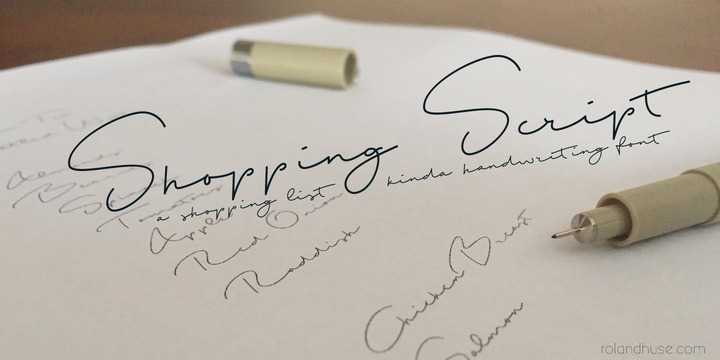 Shopping Script
a shopping list kinda handwriting font
Red Onion
Raddish
Chicken Breast
Salmon
rolandhuse.com